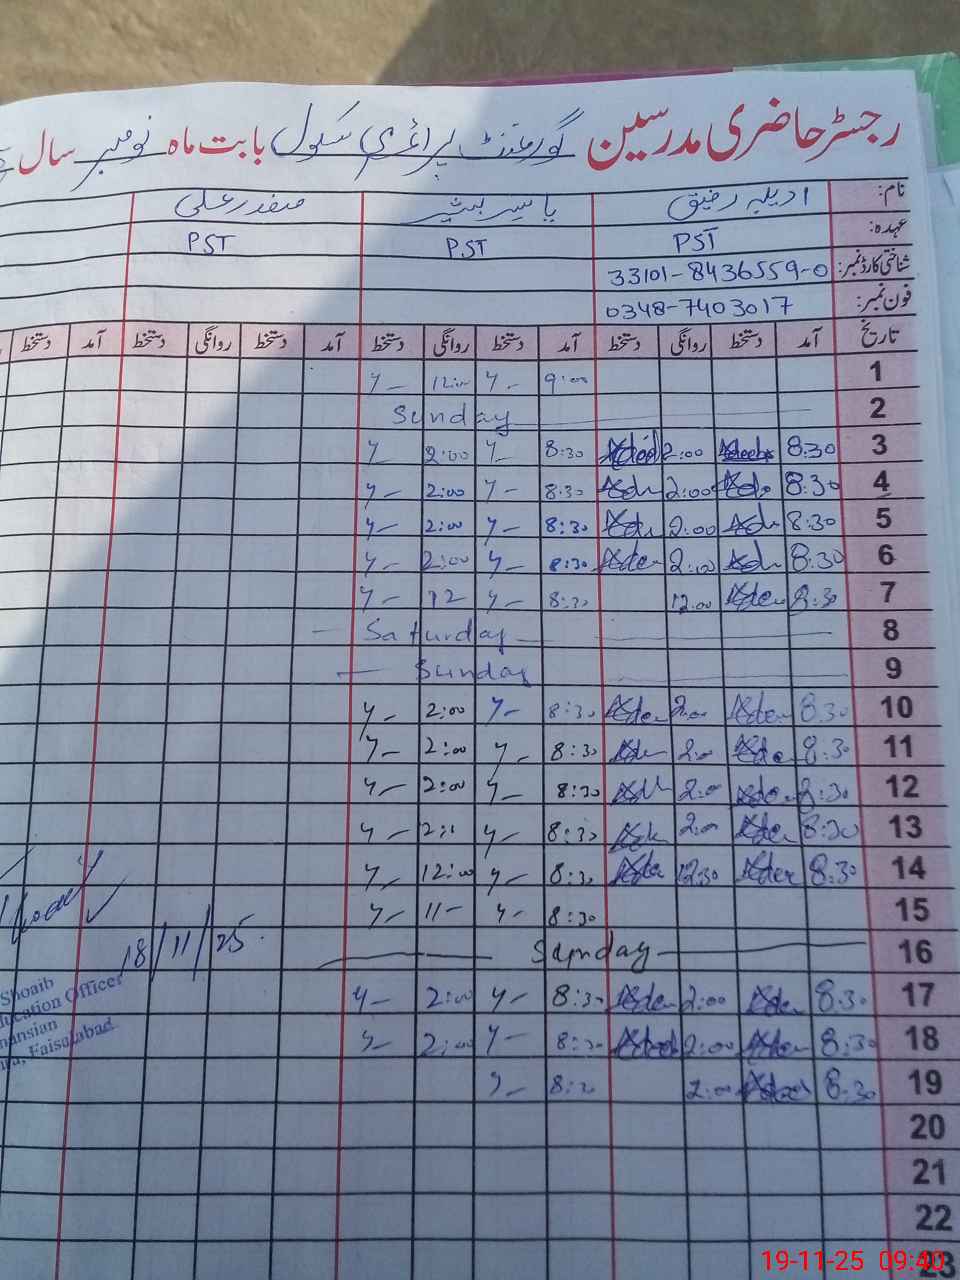 رجسٹر حاضری مدرسین گورنمنٹ پرائمری سکول بابت ماہ نومبر سال
نام: ادیبہ رفیق یاسر بشیر صفدر علی
عہدہ: PST PST PST
شناختی کارڈ نمبر: 33101-8436559-0
فون نمبر: 0348-7403017
تاریخ آمد دستخط روانگی دستخط آمد دستخط روانگی دستخط آمد دستخط روانگی دستخط آمد دستخط
1 9:00 12:00
2 Sunday
3 8:30 2:00 8:30 2:00
4 8:30 2:00 8:30 2:00
5 8:30 2:00 8:30 2:00
6 8:30 2:00 8:30 2:00
7 8:30 12:00 8:30 12
8 Saturday
9 Sunday
10 8:30 2:00 8:30 2:00
11 8:30 2:00 8:30 2:00
12 8:30 2:00 8:30 2:00
13 8:30 2:00 8:30
14 8:30 12:30 8:30 12:00
15 8:30 11-
16 Sunday
17 8:30 2:00 8:30 2:00
18 8:30 2:00 8:30 2:00
19 8:30 2:00 8:30
20
21
22
23
18/11/25.
Shoaib
ducation Officer
Faisalabad
19-11-25 09:40